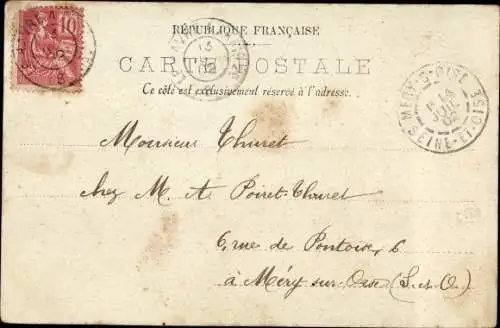 RÉPUBLIQUE FRANÇAISE
CARTE POSTALE
Ce côté est exclusivement réservé à l'adresse.
10
13
02
MERY-S-OISE
14
JUIL
02
SEINE-ET-OISE
Monsieur Thuret
chez M. A. Poiret-Thuret
6, rue de Pontoise, 6
à Méry-sur-Oise (S.-et-O.)